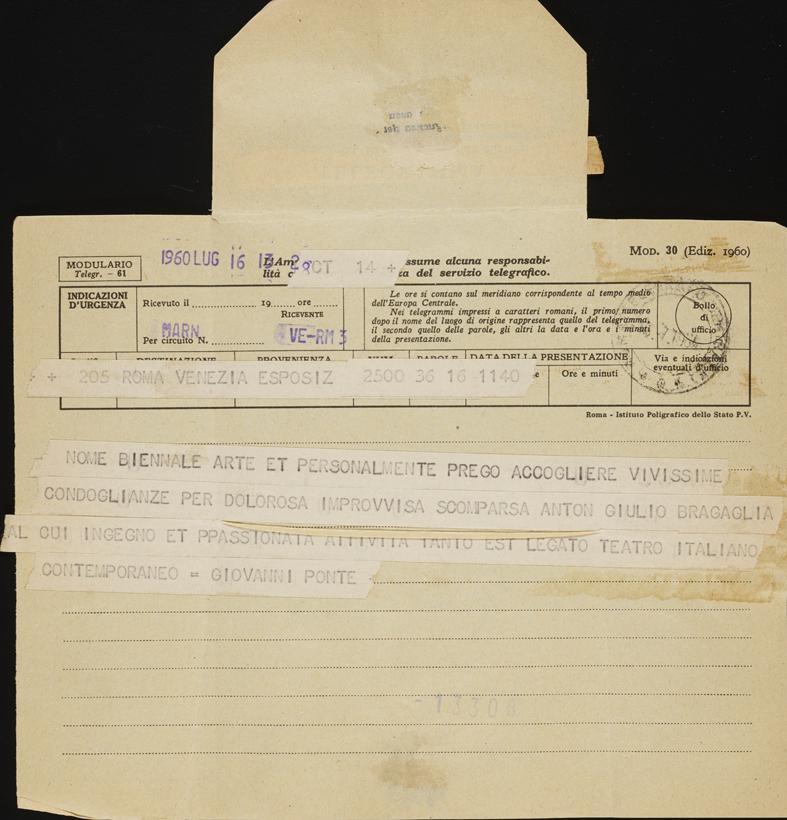 MODULARIO
Telegr. - 61
1960 LUG 16 13
L'Am
ssume alcuna responsabi-
lità c
za del servizio telegrafico.
CT 14 +
MOD. 30 (Ediz. 1960)
INDICAZIONI
D'URGENZA
Ricevuto il 19 ore
RICEVENTE
MARN
Per circuito N.
VE-RM 3
Le ore si contano sul meridiano corrispondente al tempo medio
dell'Europa Centrale.
Nei telegrammi impressi a caratteri romani, il primo numero
dopo il nome del luogo di origine rappresenta quello del telegramma,
il secondo quello delle parole, gli altri la data e l'ora e i minuti
della presentazione.
Bollo
di
ufficio
DESTINAZIONE PROVENIENZA NUM. PAROLE DATA DELLA PRESENTAZIONE
Via e indicazioni
eventuali d'ufficio
Ore e minuti
+ + 205 ROMA VENEZIA ESPOSIZ 2500 36 16 1140
Roma - Istituto Poligrafico dello Stato P.V.
NOME BIENNALE ARTE ET PERSONALMENTE PREGO ACCOGLIERE VIVISSIME
CONDOGLIANZE PER DOLOROSA IMPROVVISA SCOMPARSA ANTON GIULIO BRAGAGLIA
AL CUI INGEGNO ET PPASSIONATA ATTIVITA TANTO EST LEGATO TEATRO ITALIANO
CONTEMPORANEO = GIOVANNI PONTE
- 13308